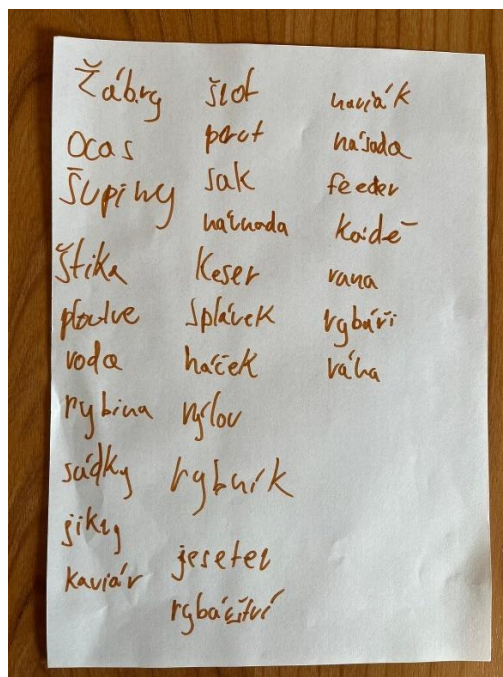 Žábry
ocas
šupiny
štika
ploutve
voda
rybina
sádky
jikry
kaviár
šlot
prut
sak
návnada
keser
splávek
háček
výlov
rybník
jeseter
rybářství
naviják
násada
feeder
kádě
vana
rybáři
váha